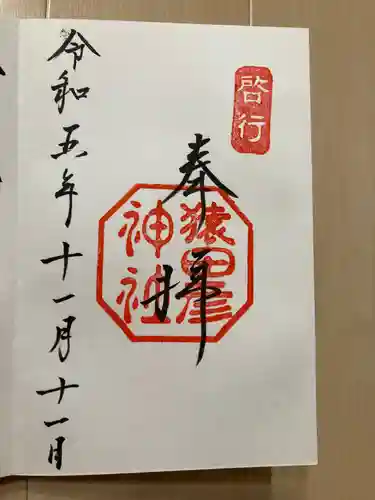 啓行
奉拝
猿田彦
神社
令和五年十一月十一日